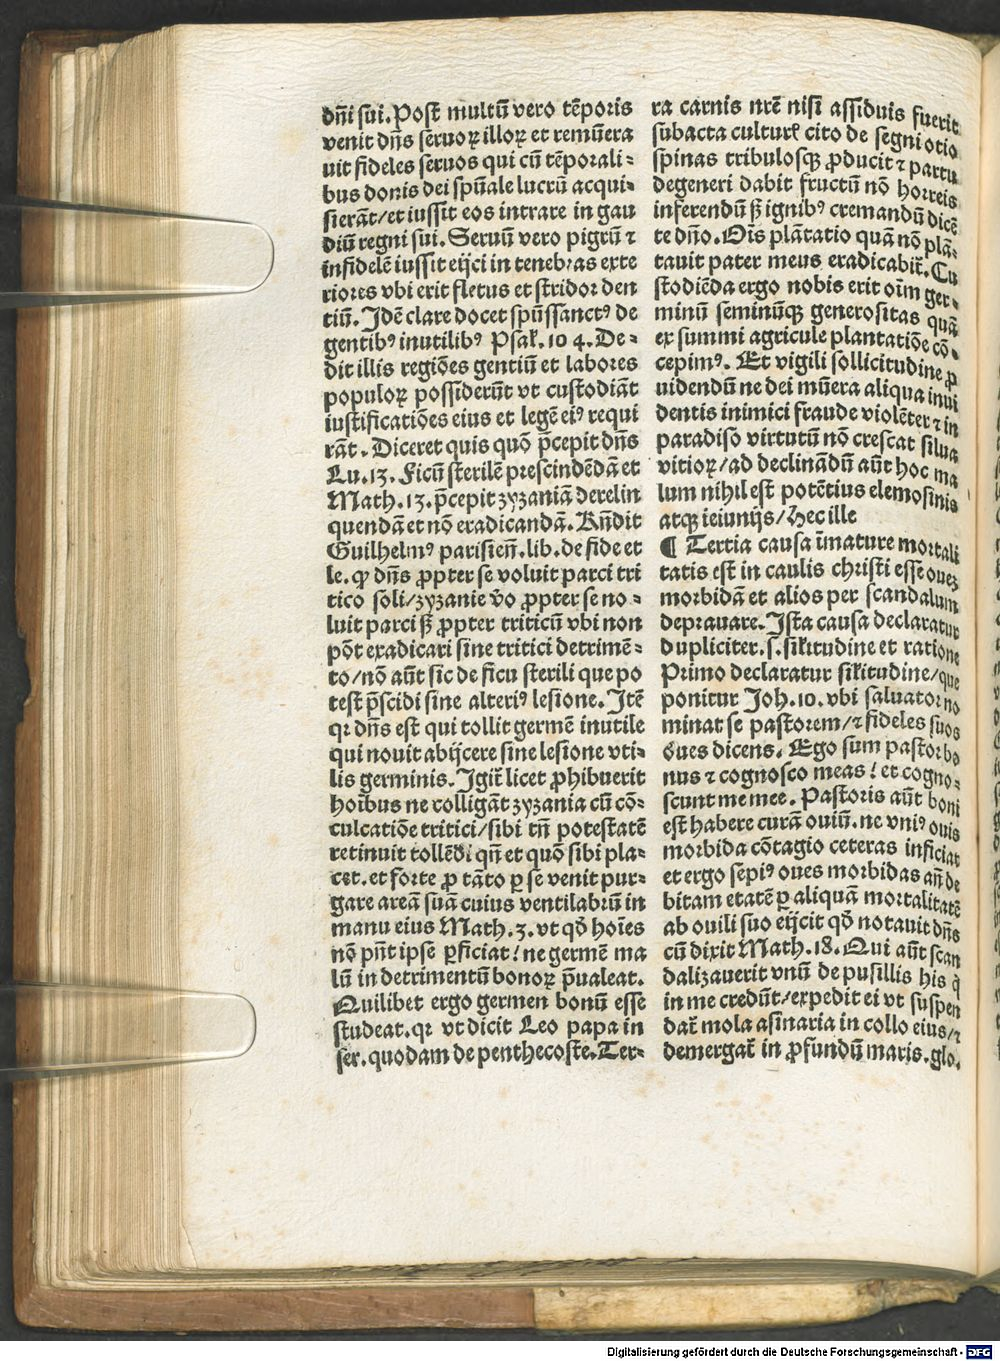 dn̄i sui. Post multū vero tēporis
venit dn̄s seruoꝝ illoꝝ et remūera
uit fideles seruos qui cū tēporali⸗
bus donis dei spūale lucrū acqui⸗
sierāt/et iussit eos intrare in gau
diū regni sui. Seruū vero pigrū ⁊
infidelē iussit eijci in tenebras exte
riores vbi erit fletus et stridor den
tiū. Idē clare docet spūssanctꝰ de
gentibꝰ inutilibꝰ Psal̄. 104. De⸗
dit illis regiōes gentiū et labores
populoꝝ possiderūt vt custodiāt
iustificatiōes eius et legē eiꝰ requi
rāt. Diceret quis quō p̄cepit dn̄s
Lu. 13. Ficū sterilē prescindēdā et
Math. 13. p̄cepit zyzaniā derelin
quendā et nō eradicandā. Rn̄dit
Guilhelmꝰ parisien̄. lib. de fide et
le. ꝙ dn̄s ꝓpter se voluit parci tri
tico soli/zyzanie v̄o ꝓpter se no⸗
luit parci sꝫ ꝓpter triticū vbi non
pōt eradicari sine tritici detrimē⸗
to/nō aūt sic de ficu sterili que po
test p̄scidi sine alteriꝰ lesione. Itē
qꝛ dn̄s est qui tollit germē inutile
qui nouit abijcere sine lesione vti⸗
lis germinis. Igit̄ licet ꝓhibuerit
hoībus ne colligāt zyzania cū cō⸗
culcatiōe tritici/sibi tn̄ potestatē
retinuit tollēdi qn̄ et quō sibi pla⸗
cet. et forte ꝓ tāto ꝑ se venit pur⸗
gare areā suā cuius ventilabrū in
manu eius Math. 3. vt qd̄ hoīes
nō pn̄t ipse ꝑficiat! ne germē ma
lū in detrimentū bonoꝝ p̄ualeat.
Quilibet ergo germen bonū esse
studeat. qꝛ vt dicit Leo papa in
ser. quodam de penthecoste. Ter⸗
ra carnis nrē nisi assiduis fuerit
subacta culturꝭ cito de segni otio
spinas tribulosqꝫ ꝓducit ⁊ partu
degeneri dabit fructū nō horreis
inferendū sꝫ ignibꝰ cremandū dicē
te dn̄o. Oīs plātatio quā nō plā⸗
tauit pater meus eradicabit̄. Cu
stodiēda ergo nobis erit oīm ger⸗
minū seminūqꝫ generositas quā
ex summi agricule plantatiōe cō⸗
cepimꝰ. Et vigili sollicitudine ꝓ
uidendū ne dei mūera aliqua inui
dentis inimici fraude violēter ⁊ in
paradiso virtutū nō crescat silua
vitioꝝ/ad declinādū aūt hoc ma
lum nihil est potētius elemosinis
atqꝫ ieiunijs/Hec ille
¶ Tertia causa īmature mortali
tatis est in caulis christi esse ouez
morbidā et alios per scandalum
deprauare. Ista causa declaratur
dupliciter. s. sil̄itudine et ratione
Primo declaratur sil̄itudine/que
ponitur Joh. 10. vbi saluator no
minat se pastorem/⁊ fideles suos
oues dicens. Ego sum pastor bo
nus ⁊ cognosco meas! et cogno⸗
scunt me mee. Pastoris aūt boni
est habere curā ouiū. ne vniꝰ ouis
morbida cōtagio ceteras inficiat
et ergo sepiꝰ oues morbidas an̄ de
bitam etatē ꝑ aliquā mortalitatē
ab ouili suo eijcit qd̄ notauit dn̄s
cū dixit Math. 18. Qui aūt scan
dalizauerit vnū de pusillis his q̄
in me credūt/expedit ei vt suspen
dat̄ mola asinaria in collo eius/⁊
demergat̄ in ꝓfundū maris. glo.
Digitalisierung gefördert durch die Deutsche Forschungsgemeinschaft - DFG